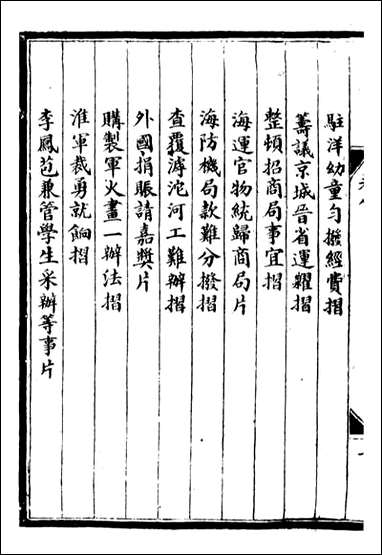 駐洋幼童勻撥經費摺
籌議京城晉省運糶摺
整頓招商局事宜摺
海運官物統歸商局片
海防機局款難分撥摺
查覆滹沱河工難辦摺
外國捐賑請嘉獎片
購製軍火畫一辦法摺
淮軍裁勇就餉摺
李鳳苞兼管學生采辦等事片